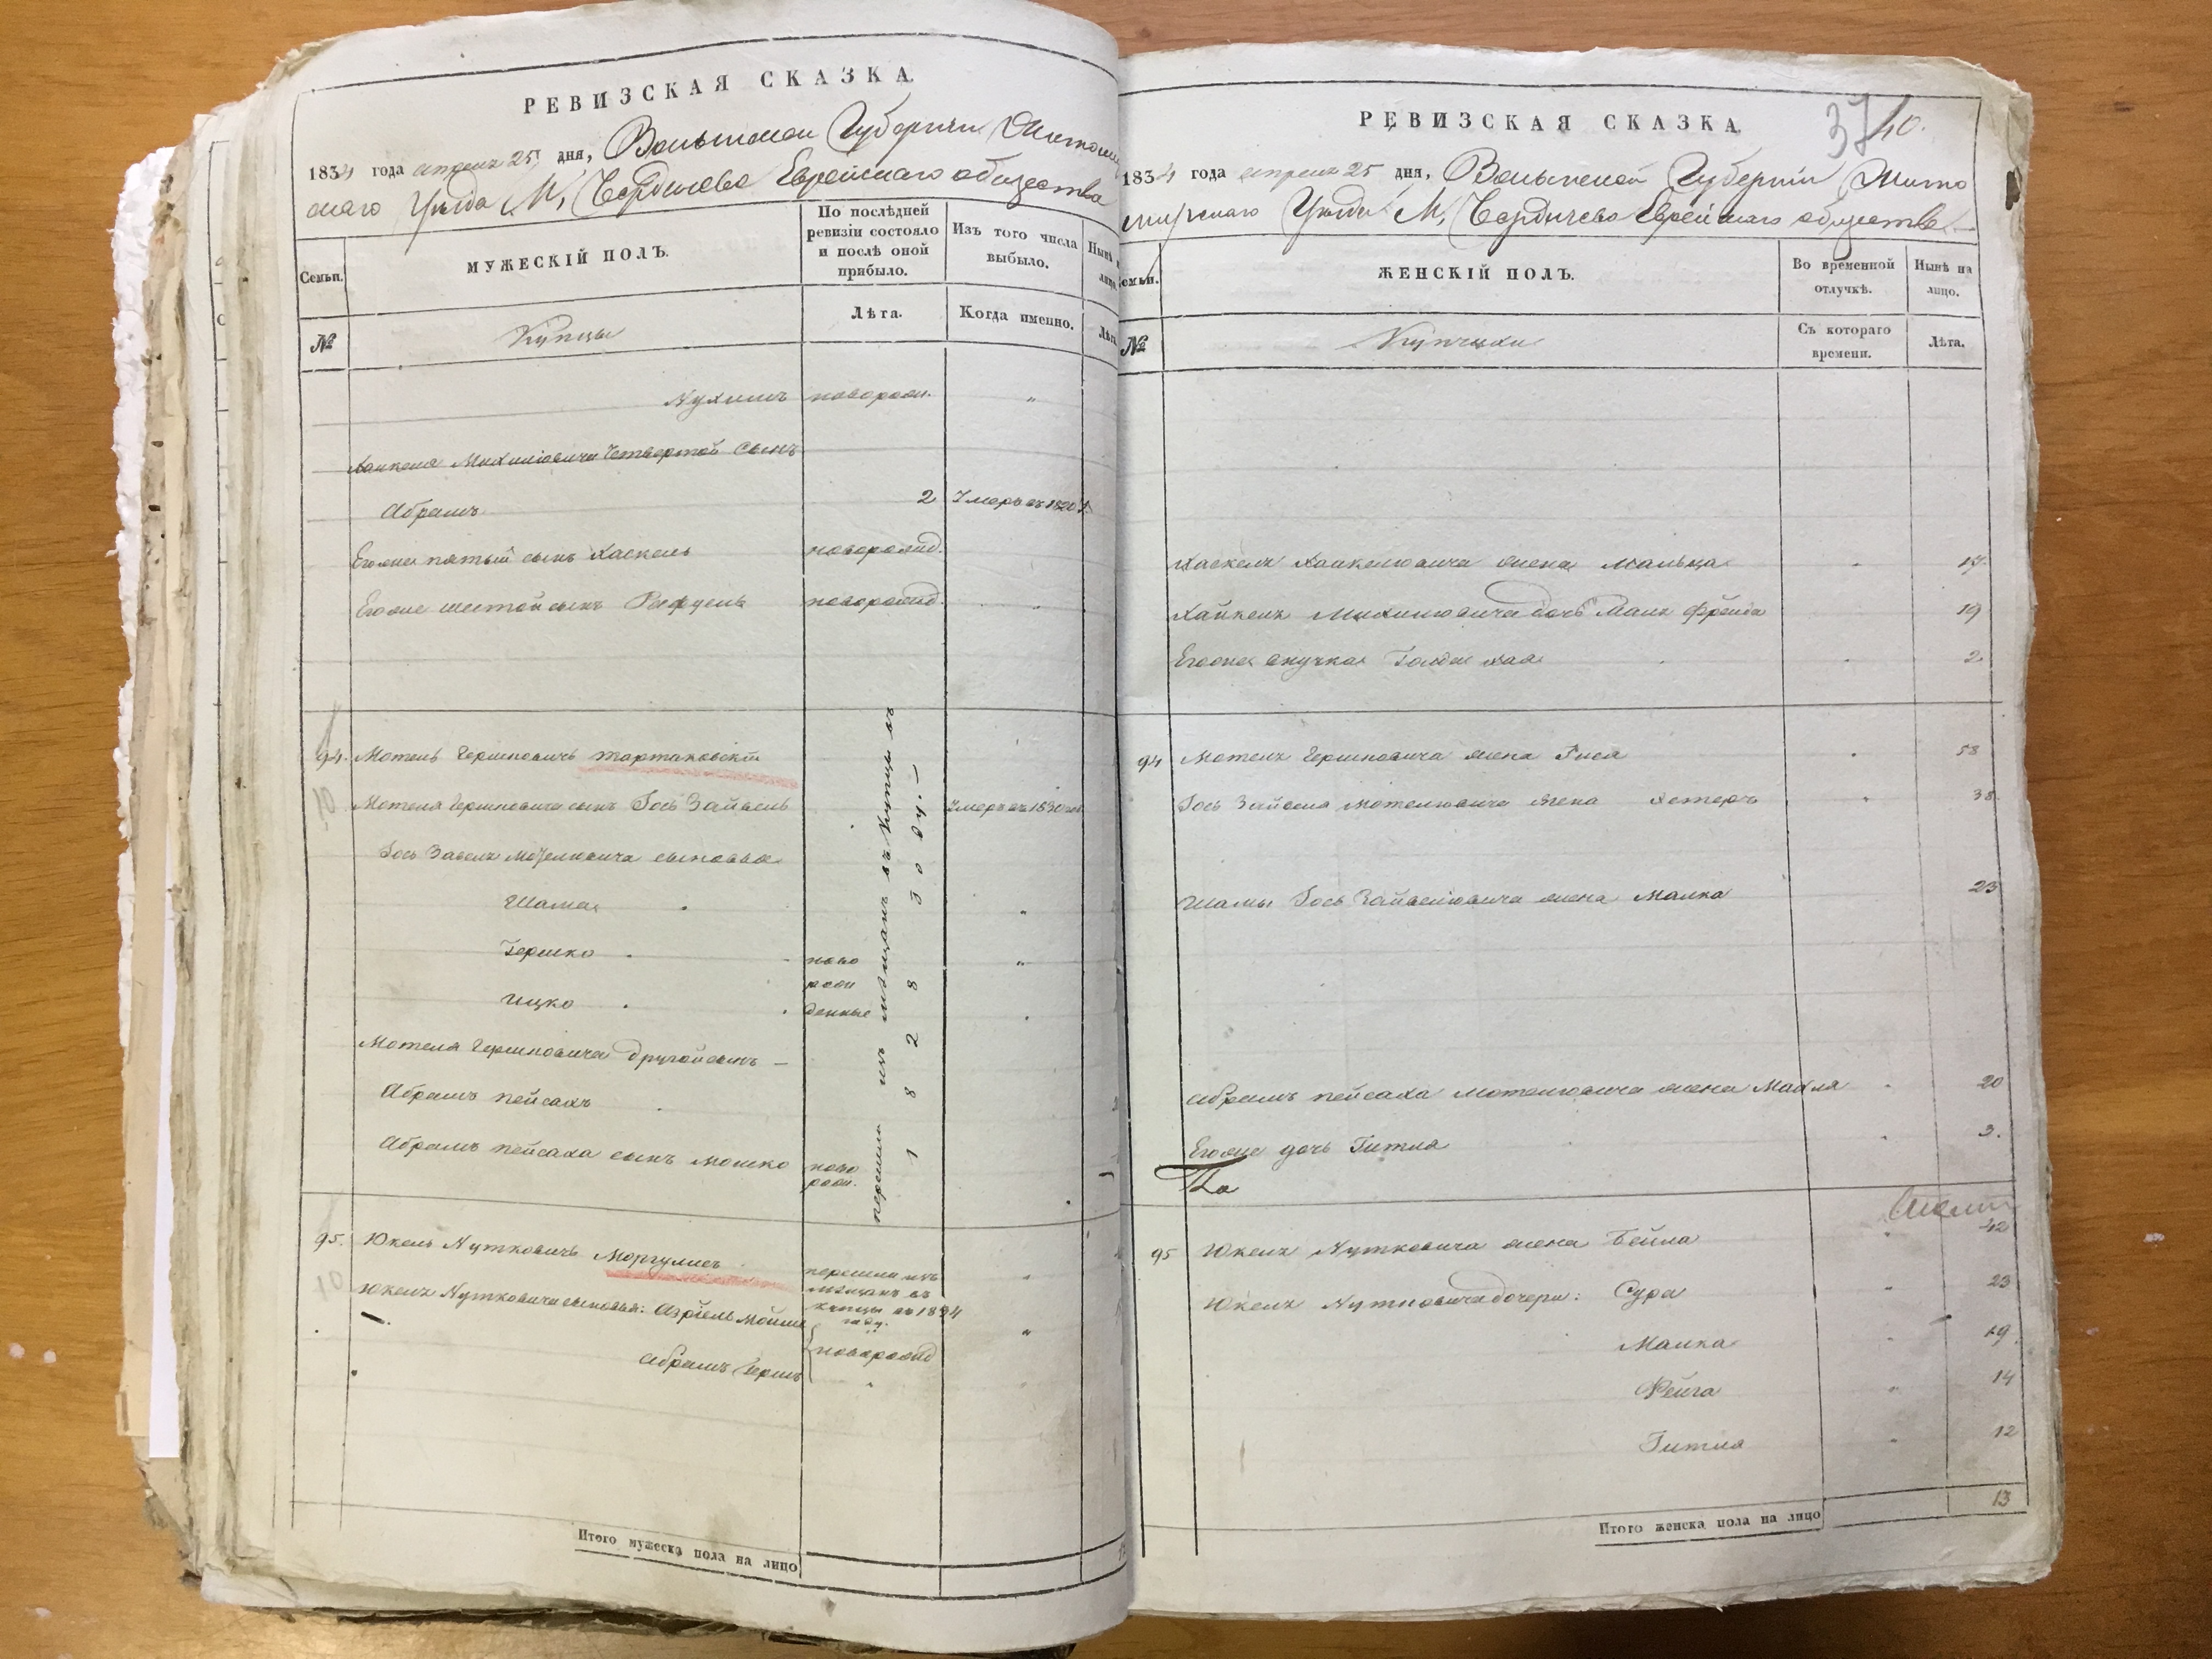 РЕВИЗСКАЯ СКАЗКА.
1834 года апреля 25 дня, Волынской Губернии Житомир
скаго Уезда М, Бердичева Еврейскаго общества
Семьи.
МУЖЕСКІЙ ПОЛЪ.
По послѣдней ревизіи состояло и послѣ оной прибыло.
Изъ того числа выбыло.
Нынѣ на лицо.
№
Купцы
Лѣта.
Когда именно.
Лѣта
Нухимъ новорожд. "
Хаикеля Михилiовича Четвертой Сынъ
Абрамъ 2 Умеръ въ 1820 г.
Егожъ пятый сынъ Хаскель новорожд.
Егоже шестой сынъ Рафуель новорожд. "
94. Мотель Гершковичъ Тартаковскій
10
Мотеля Гершковича сынъ Іось Зайвель Умеръ въ 1830 год
Іось Завеля Мотелиовича сыновья
Шама "
Гершко ново "
рож
Ицко денные
Мотеля Гершковича другой сынъ —
Абрамъ пейсахъ
Абрамъ пейсаха сынъ Мошко ново
рож.
перешли изъ мѣщанъ въ купцы въ
1828 году. —
95. Юкель Нутковичъ Моргулисъ перешли изъ "
10
мѣщанъ въ
купцы въ 1834
году.
Юкеля Нутковича сыновья: Азріель Мойше новорожд "
Абрамъ Гершъ "
Итого мужеска пола на лицо
РЕВИЗСКАЯ СКАЗКА.
37
40.
1834 года апреля 25 дня, Волынской Губерніи Жито
мирскаго Уезда М, Бердичева Еврейскаго общества
Семьи.
ЖЕНСКІЙ ПОЛЪ.
Во временной отлучкѣ.
Нынѣ на лицо.
№
Купчихи
Съ котораго времени.
Лѣта.
Хаскеля Хаикелиовича жена Мальца 17.
Хайкеля Михилиовича дочь Маля Фрейда 19
Егожа внучка Голда хая 2
94 Мотеля Гершковича жена Гися 58
Іось Зайвеля Мотелиовича жена Хетеръ " 38
Шамы Іось Зайвелиовича жена Малка 23
Абрамъ пейсаха Мотелиовича жена Махля 20
Егоже дочь Гитля " 3.
95 Юкеля Нутковича жена Бейла " 42
Юкеля Нутковича дочери: Сура " 23
Малка 19.
Фейга " 14
Гитля " 12
Итого женска пола на лицо 13